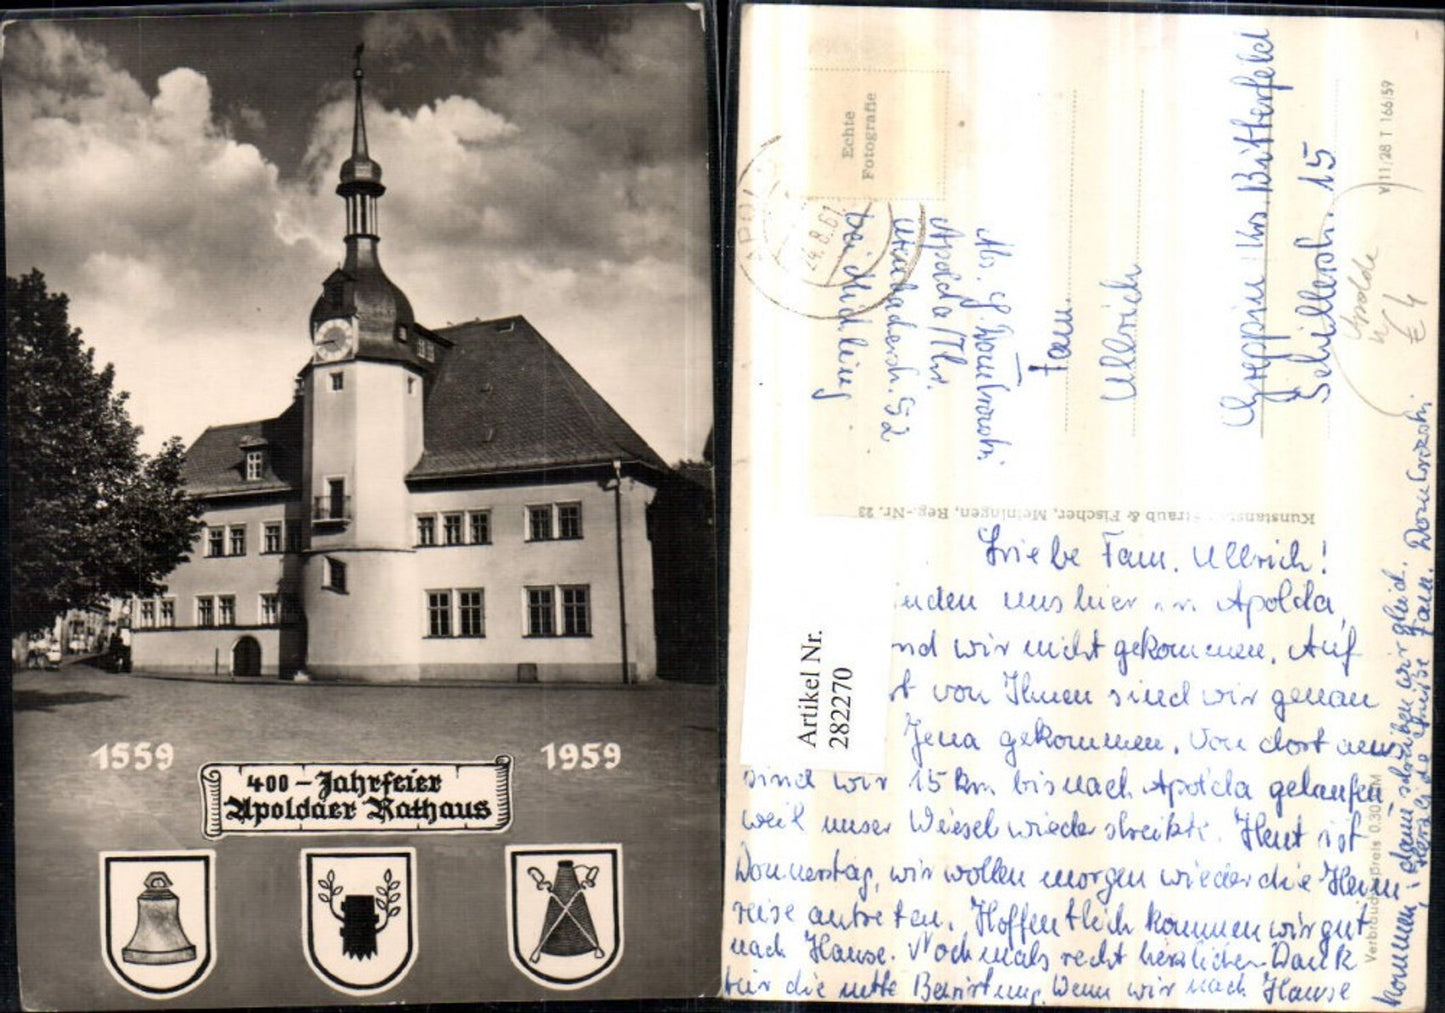 1559
1959
400-Jahrfeier
Apoldaer Rathaus
Echte
Fotografie
APOLDA
24.8.61
Abs. G.
Apolda/Thr.
52
bei
Fam.
Ullrich
Greppin Krs. Bitterfeld
Schillerstr. 15
V 11/28 T 166/59
Apolda
€ 4
Straub & Fischer, Meiningen, Reg.-Nr. 23
Artikel Nr.
282270
Liebe Fam. Ullrich!
inden uns hier in Apolda,
nd wir nicht gekommen. Auf
rt von Ihnen sind wir genau
Jena gekommen. Von dort aus
sind wir 15 km bis nach Apolda gelaufen,
weil unser Wiesel wieder streikte. Heut ist
Donnerstag, wir wollen morgen wieder die Heim
reise antreten. Hoffentlich kommen wir gut
nach Hause. Nochmals recht herzlichen Dank
für die nette Bewirtung. Wenn wir nach Hause
kommen, dann schreiben wir gleich.
Herzliche Grüße Fam.
Verbraucherpreis 0.30 DM